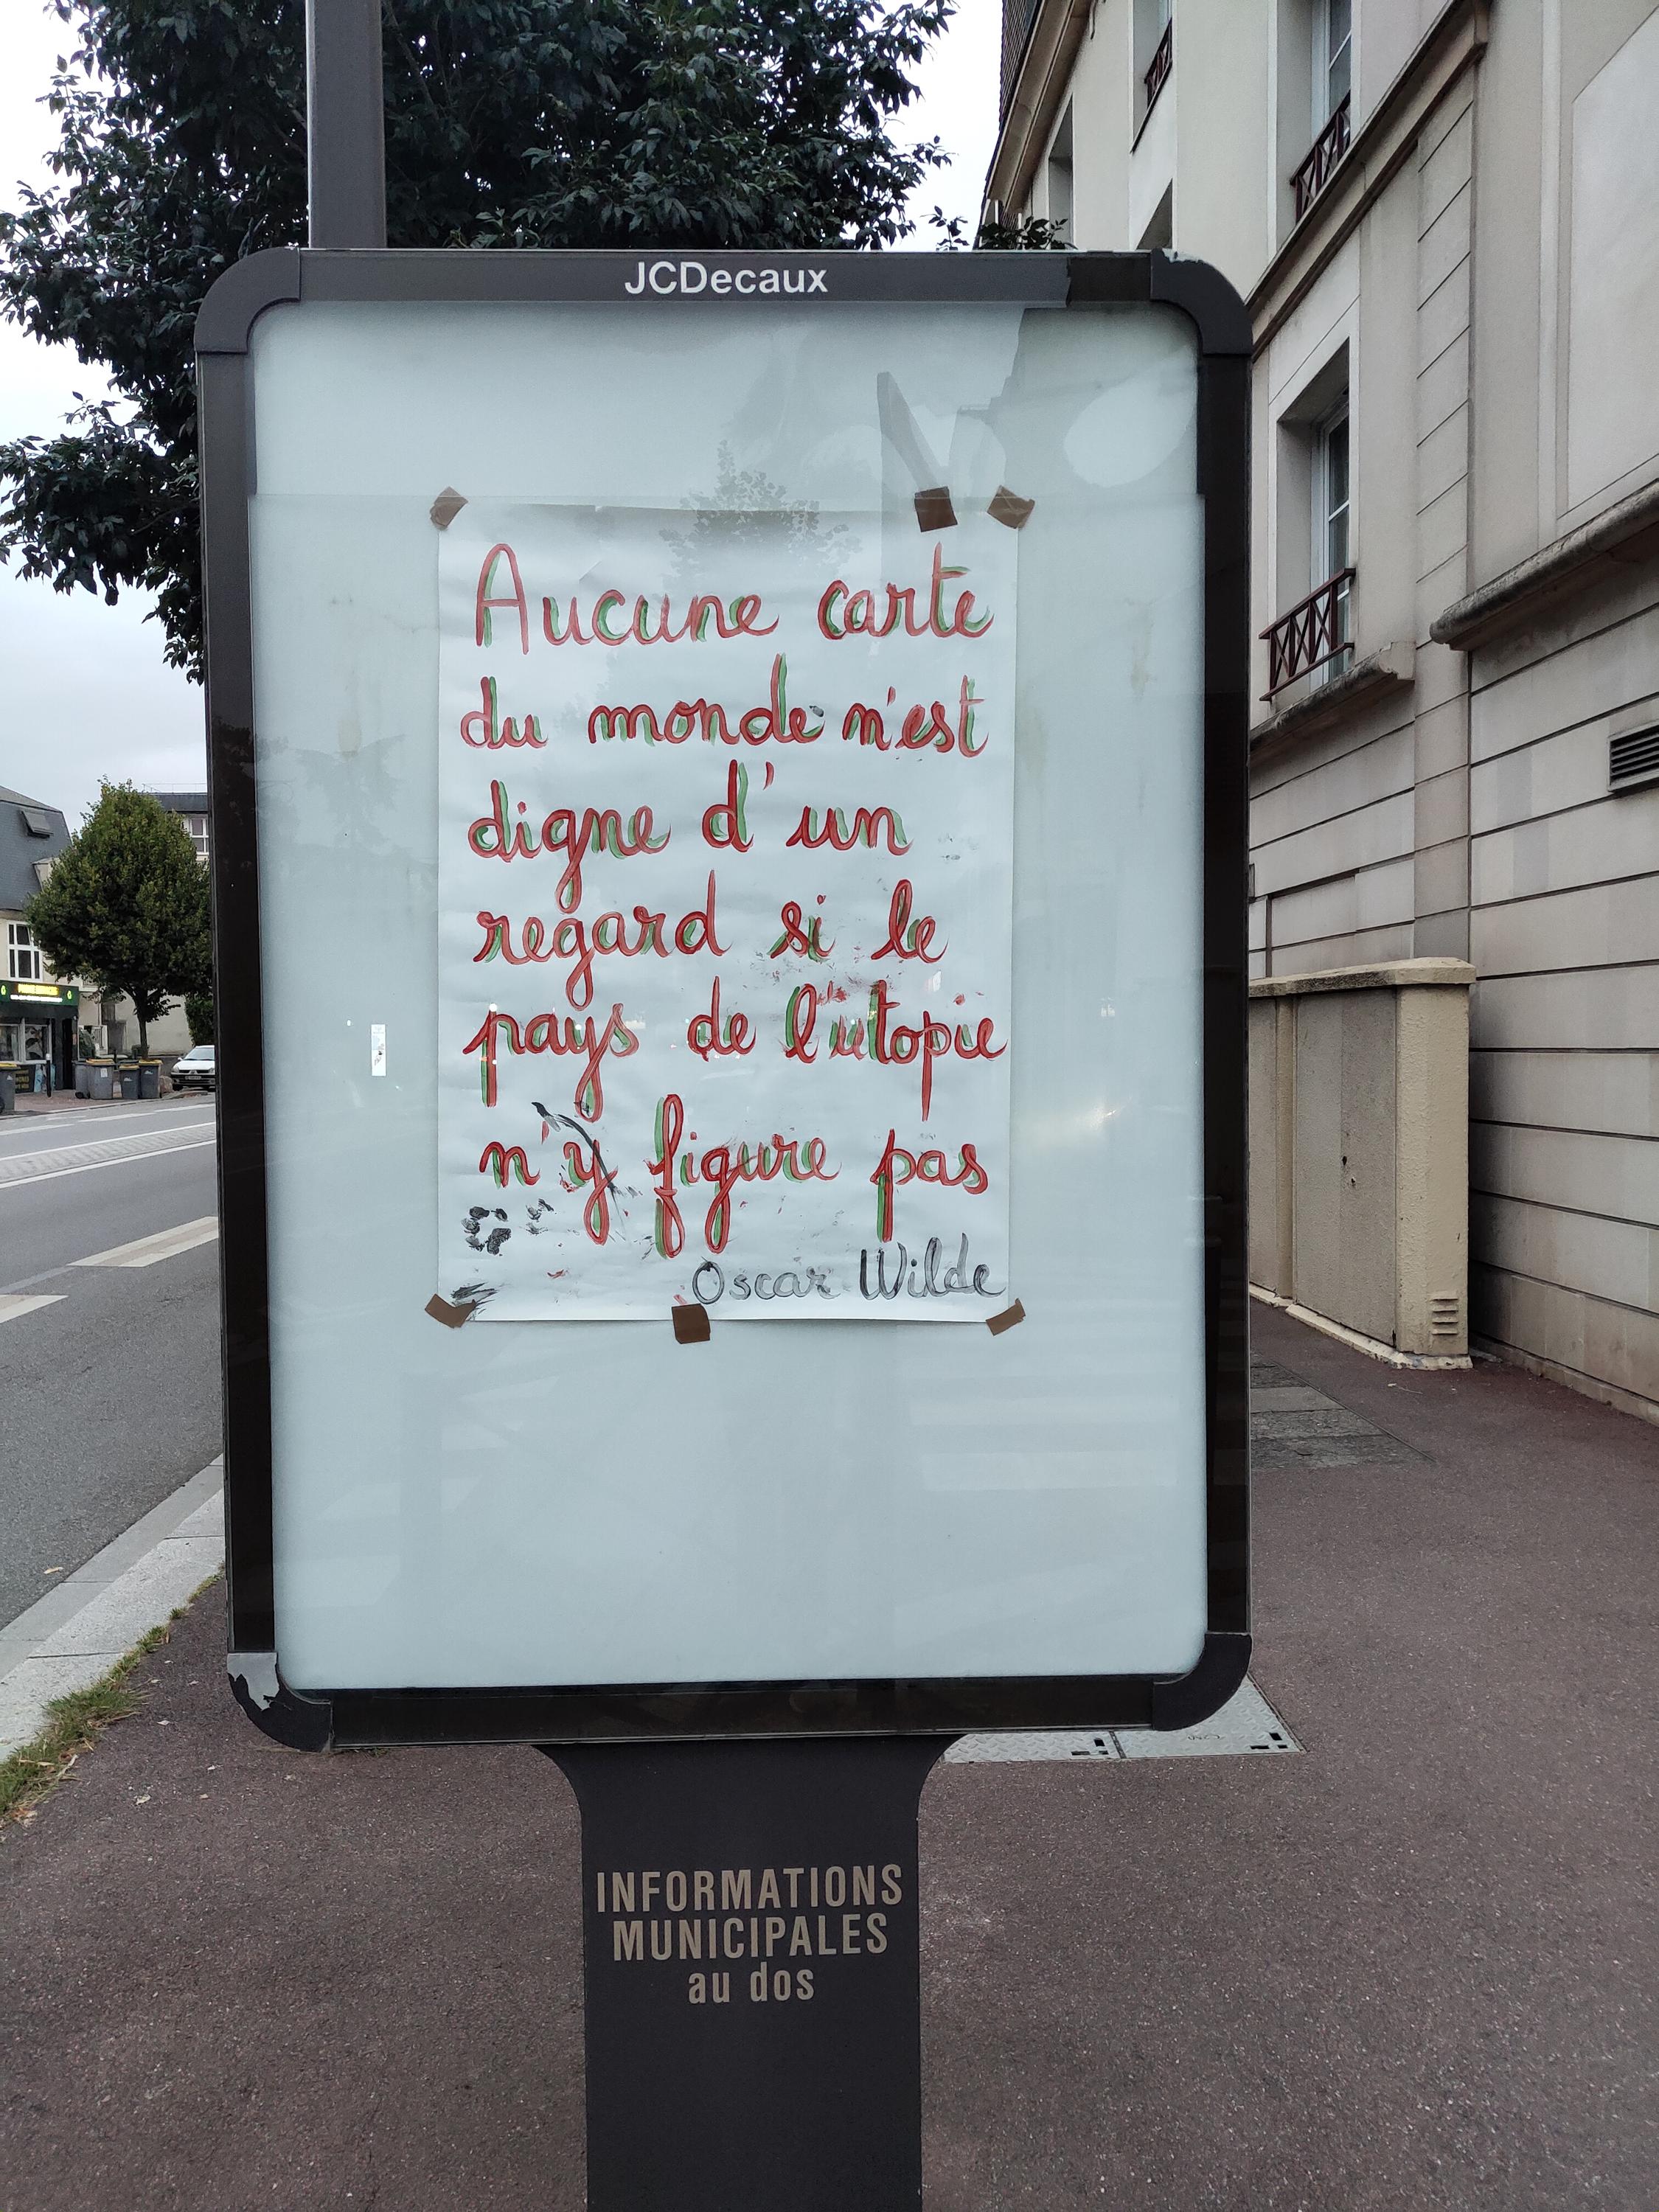 JCDecaux
Aucune carte
du monde n'est
digne d'un
regard si le
pays de l'utopie
n'y figure pas
Oscar Wilde
INFORMATIONS
MUNICIPALES
au dos